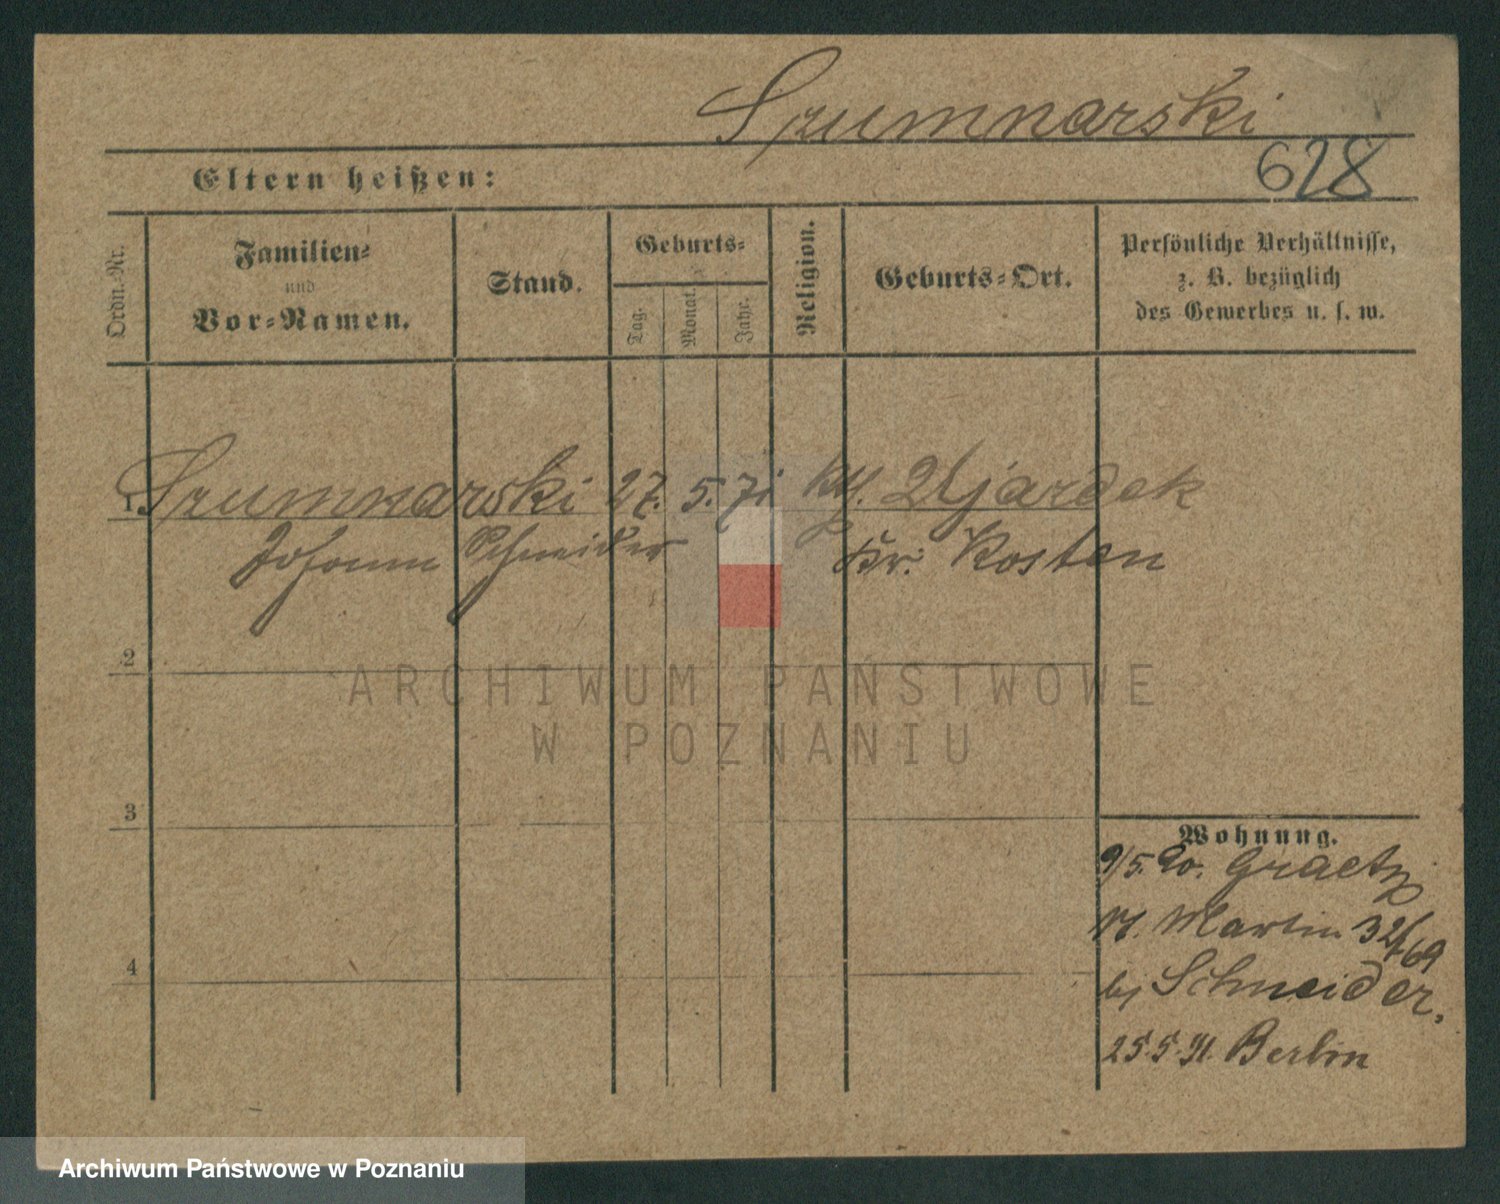 Szumnarski
628
Eltern heißen:
Ordn.-Nr.
Familien-
und
Vor-Namen.
Stand.
Geburts-
Tag.
Monat.
Jahr.
Religion.
Geburts-Ort.
Persönliche Verhältnisse,
z. B. bezüglich
des Gewerbes u. s. w.
1 Szumnarski 27. 5. 71 kth. Ujazdek
Johann Schneider Kr. Kosten
2
3
4
Wohnung.
9/5. 90. Graetz
St. Martin 32/69
bei Schneider.
25.5.91. Berlin
ARCHIWUM PAŃSTWOWE
W POZNANIU
Archiwum Państwowe w Poznaniu